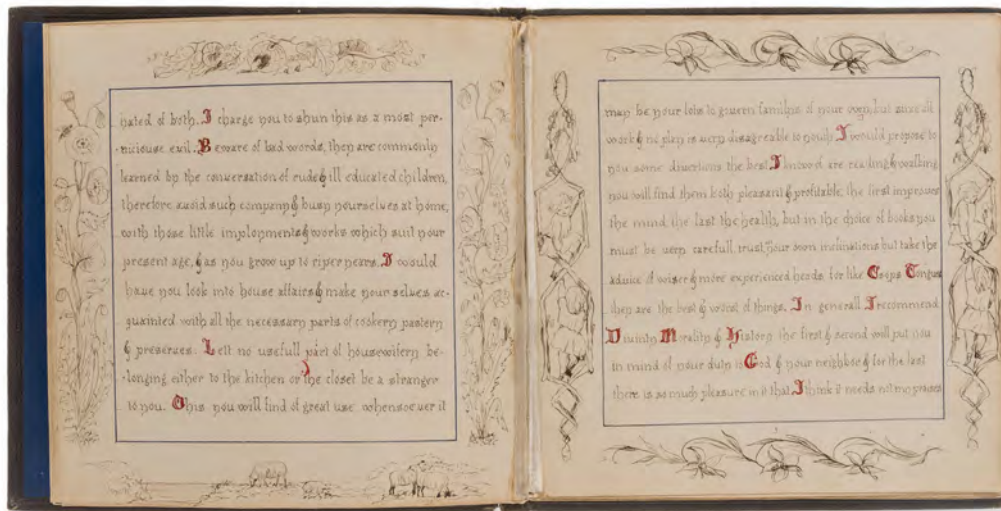 hated of both. I charge you to shun this as a most per-
-niciouse evil. Beware of bad words, they are commonly
learned by the conversation of rude & ill educated children,
therefore avoid such company & busy yourselves at home,
with those little imployments & works which suit your
present age, & as you grow up to riper years. I would
have you look into house affairs & make your selves ac-
quainted with all the necessary parts of cookery pastery
& preserves. Lett no usefull part of housewifery be-
-longing either to the kitchen or the closet be a stranger
to you. This you will find of great use whensoever it
may be your lots to govern familys of your own, but since all
work & no play is very disagreable to youth I would propose to
you some diversions the best I know of are reading & walking
you will find them both pleasant & profitable, the first improves
the mind, the last the health, but in the choice of books you
must be very carefull, trust your own inclinations but take the
advice of wiser & more experienced heads, for like Esops Tongues
they are the best & worst of things. In generall I recommend
Divinity Morality & History the first & second will put you
in mind of your duty to God & your neighbor & for the last
there is so much pleasure in it that I think it needs not my praises